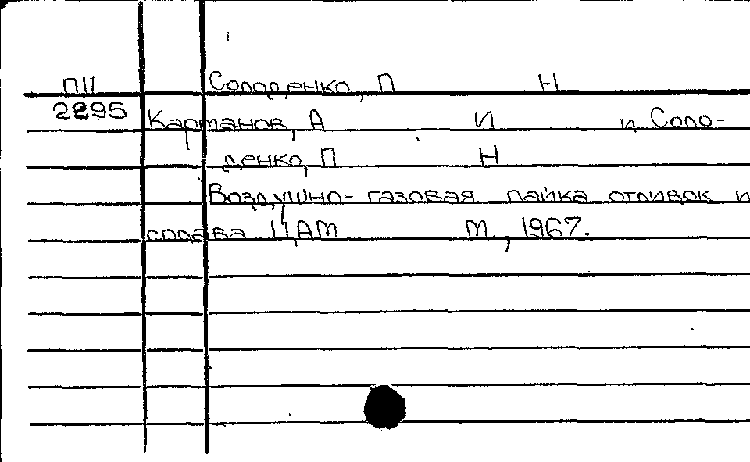 П11 Солоденко, П Н
2295 Картанов, А И и Соло-
денко, П Н
Воздушно-газовая пайка отливок и
сплава ЦАМ М., 1967.